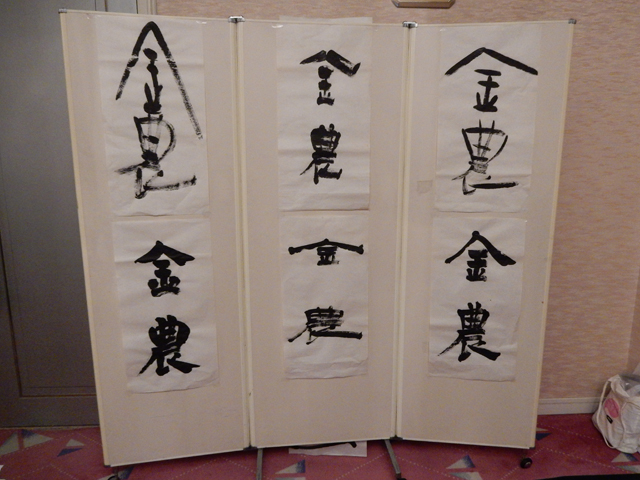 金農
金農
金農
金農
金農
金農